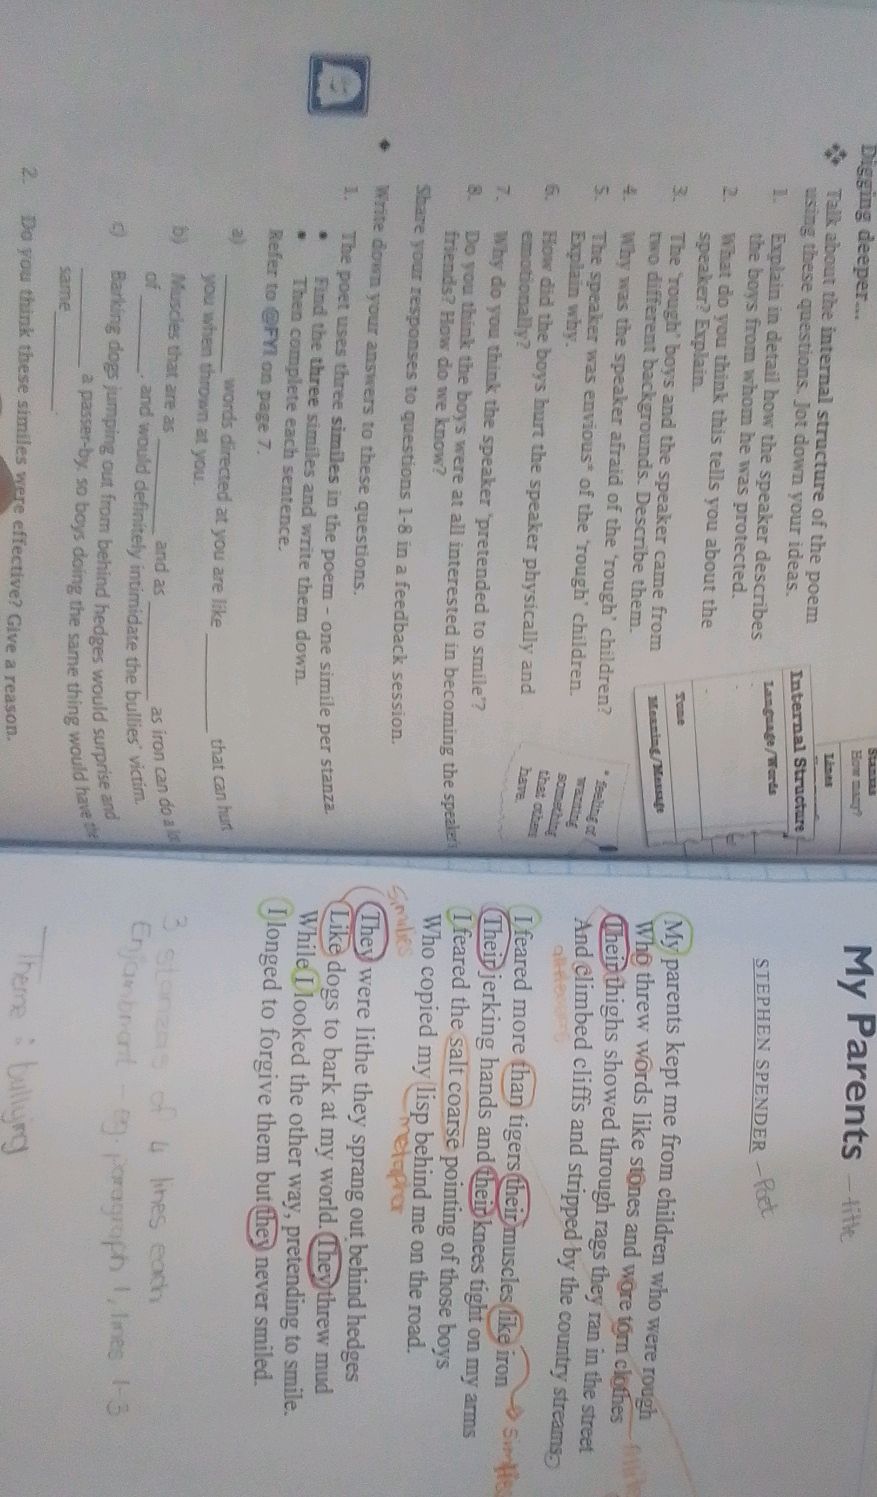 Digging deeper...
❖ Talk about the internal structure of the poem
using these questions. Jot down your ideas.
1. Explain in detail how the speaker describes
the boys from whom he was protected.
2. What do you think this tells you about the
speaker? Explain.
3. The 'rough' boys and the speaker came from
two different backgrounds. Describe them.
4. Why was the speaker afraid of the 'rough' children?
5. The speaker was envious* of the 'rough' children.
Explain why.
6. How did the boys hurt the speaker physically and
emotionally?
7. Why do you think the speaker 'pretended to smile'?
8. Do you think the boys were at all interested in becoming the speaker's
friends? How do we know?
Share your responses to questions 1-8 in a feedback session.
Stanzas
How many?
Lines
Internal Structure
Language/Words
Tone
Meaning/Message
* feeling of
wanting
something
that others
have.
◆ Write down your answers to these questions.
1. The poet uses three similes in the poem – one simile per stanza.
• Find the three similes and write them down.
• Then complete each sentence.
Refer to @FYI on page 7.
a) ________ words directed at you are like ________ that can hurt
you when thrown at you.
b) Muscles that are as ________ and as ________ as iron can do a lot
of ________, and would definitely intimidate the bullies' victim.
c) Barking dogs jumping out from behind hedges would surprise and
________ a passer-by, so boys doing the same thing would have the
same ________.
2. Do you think these similes were effective? Give a reason.
My Parents – title
STEPHEN SPENDER – Poet
My parents kept me from children who were rough
Who threw words like stones and wore torn clothes
Their thighs showed through rags they ran in the street
And climbed cliffs and stripped by the country streams.
I feared more than tigers their muscles like iron
Their jerking hands and their knees tight on my arms
I feared the salt coarse pointing of those boys
Who copied my lisp behind me on the road.
They were lithe they sprang out behind hedges
Like dogs to bark at my world. They threw mud
While I looked the other way, pretending to smile.
I longed to forgive them but they never smiled.
Similes
metaphor
3 stanzas of 4 lines each
Enjambment – eg. paragraph 1, lines 1-3
Theme : bullying